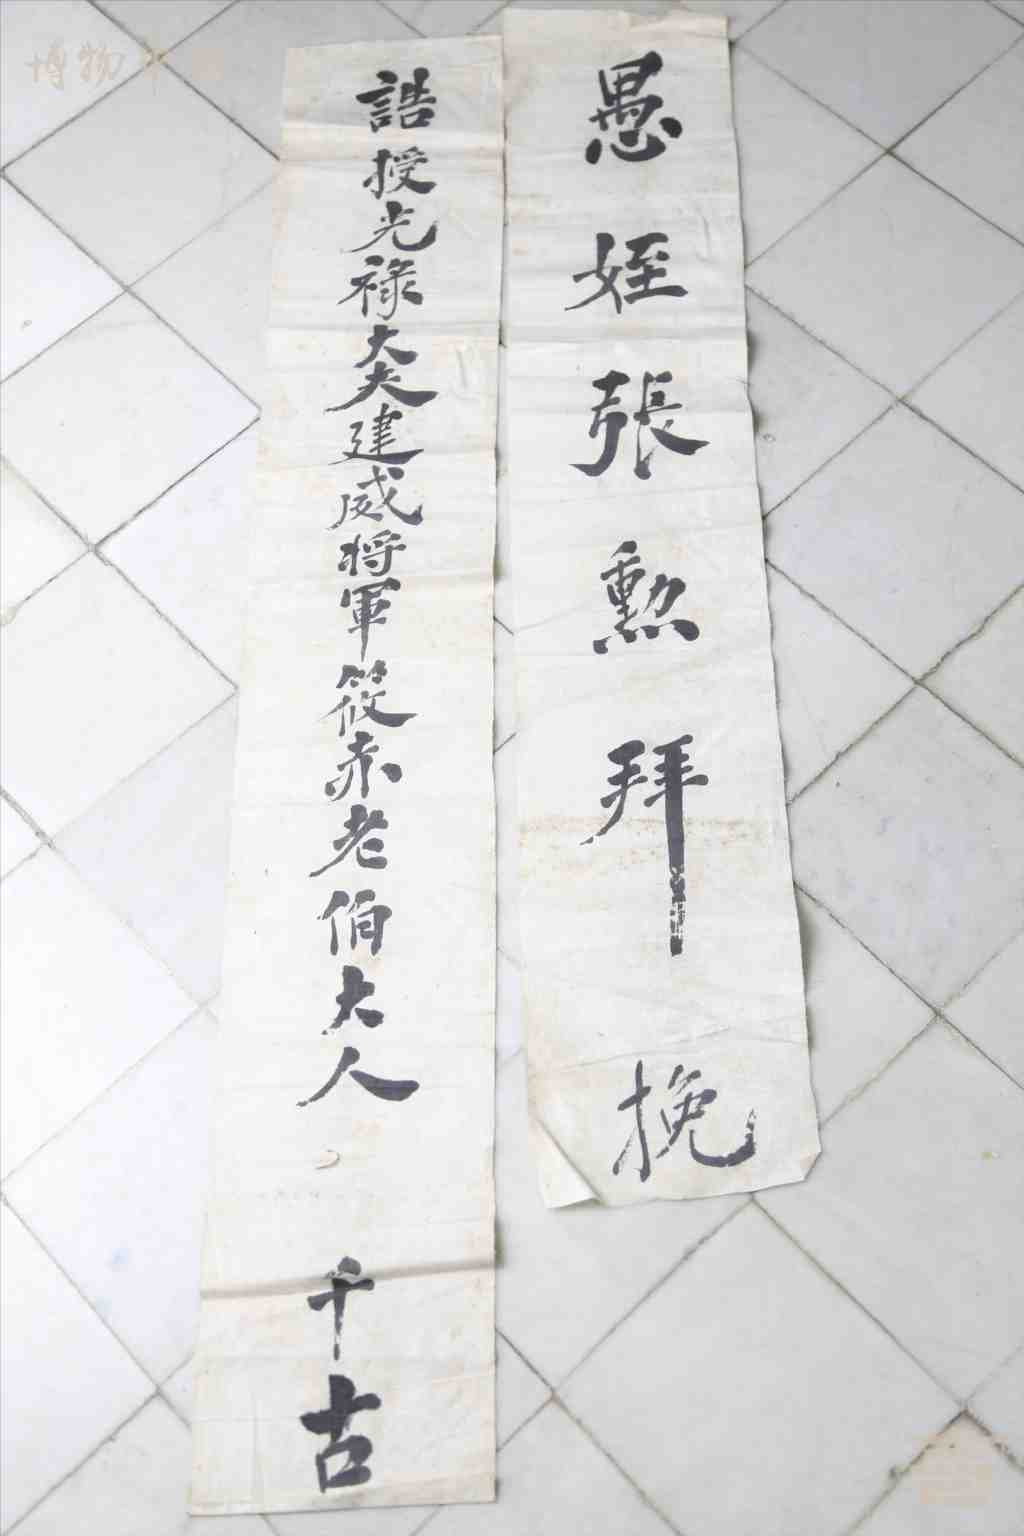 愚姪張勲拜挽
誥授光祿大夫建威將軍筱赤老伯大人千古
博物